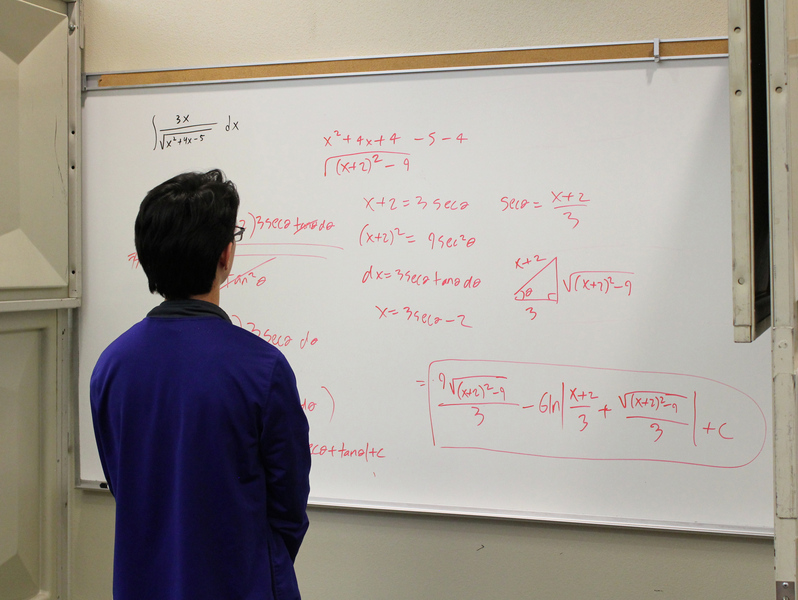 ∫ 3x / √(x²+4x-5) dx
x²+4x+4 -5-4
√((x+2)²-9)
x+2=3secθ
secθ = (x+2)/3
(x+2)²= 9sec²θ
dx=3secθtanθdθ
x=3secθ-2
x+2
√((x+2)²-9)
θ
3
2)3secθtanθdθ
tan²θ
)3secθ dθ
dθ)
secθ+tanθ|+c
= 9√((x+2)²-9)/3 - 6ln|(x+2)/3 + √((x+2)²-9)/3| +c